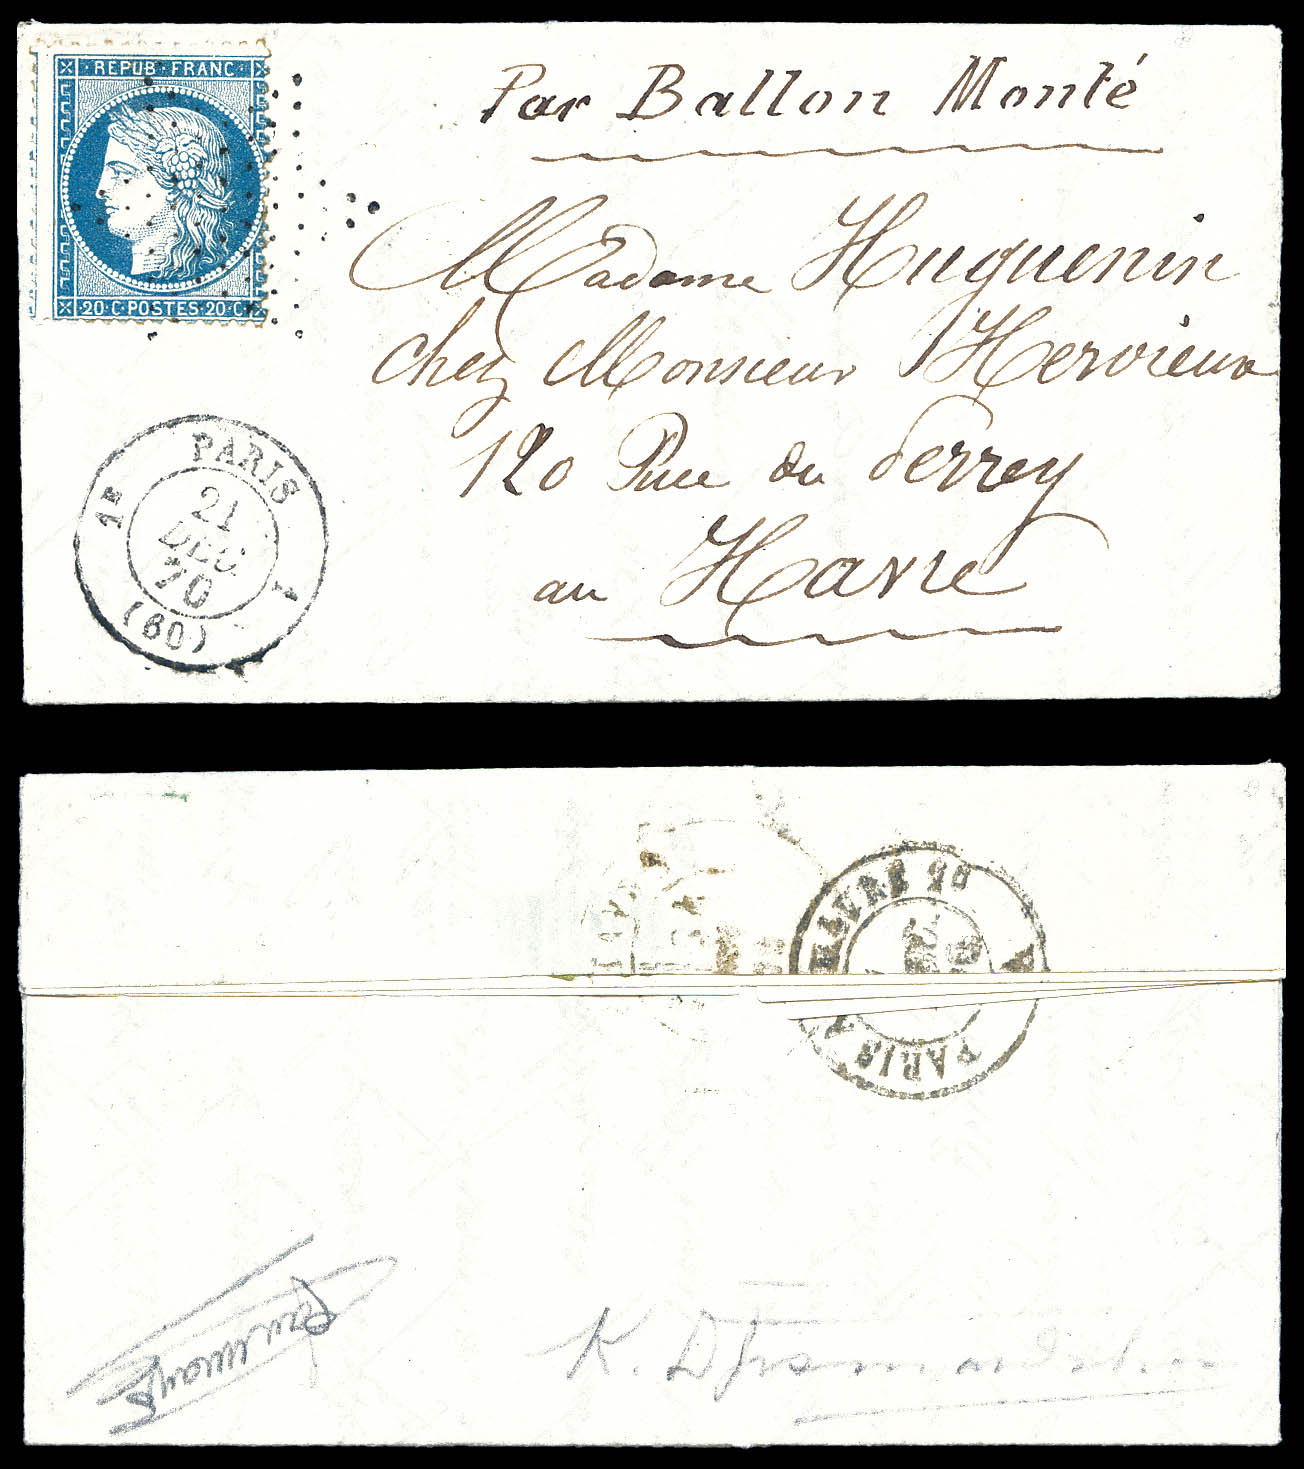 REPUB·FRANC
20·C·POSTES·20·C
Par Ballon Monté
Madame Huguenin
chez Monsieur Hervieux
120 Rue du Perrey
au Havre
PARIS
1E
21
DEC.
70
(60)
HAVRE
PARIS